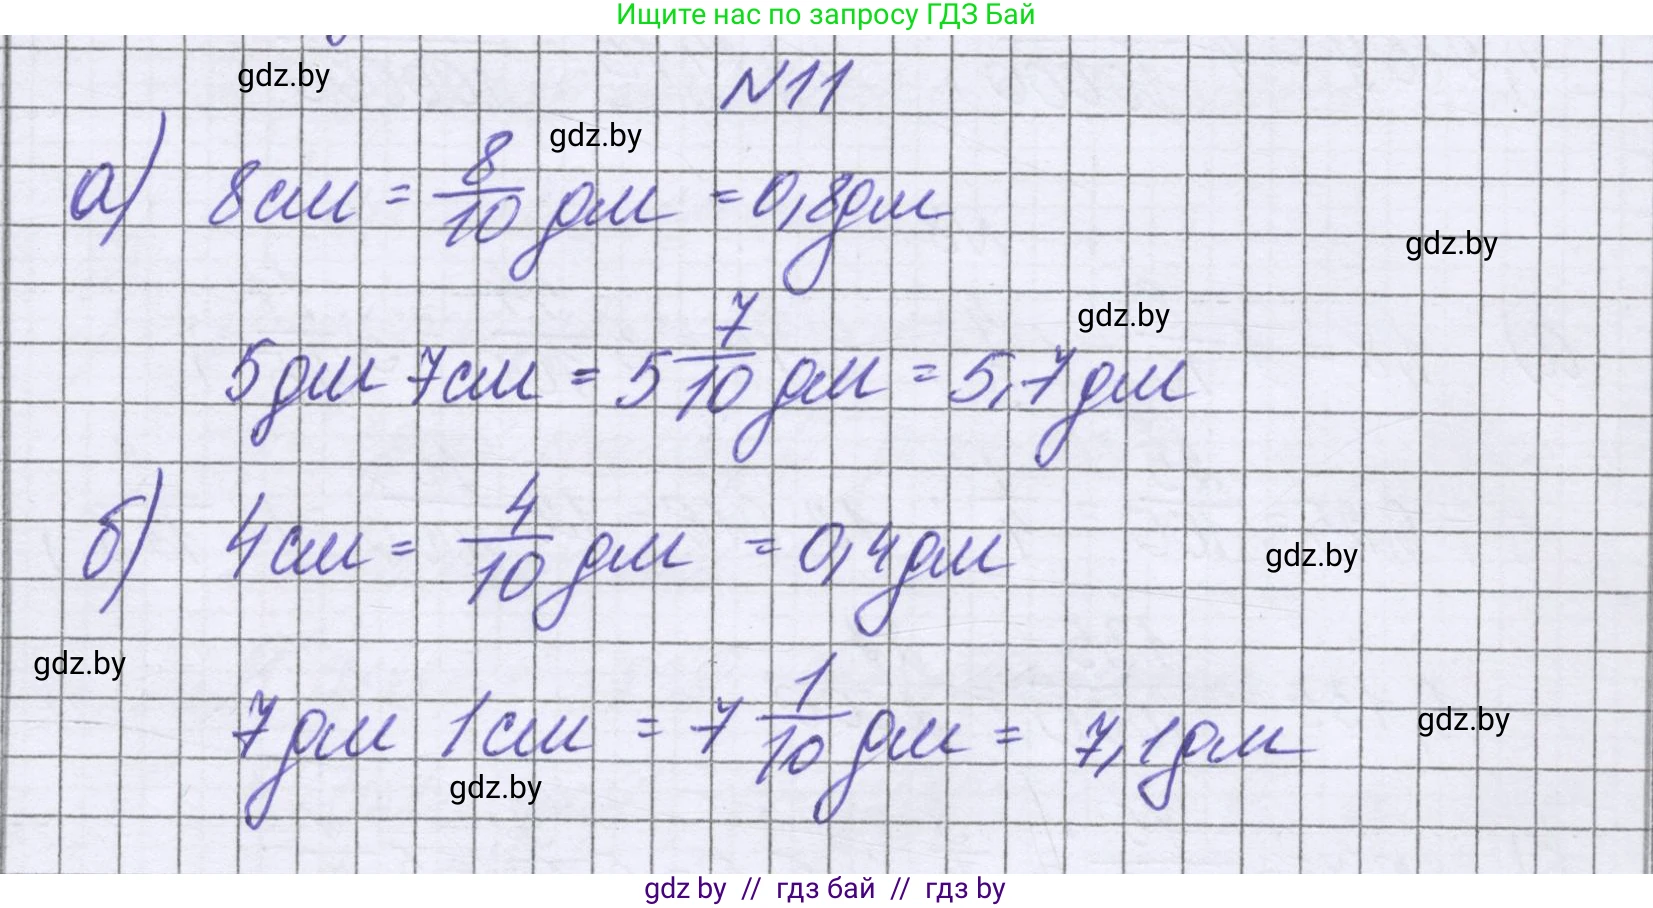 Ищите нас по запросу ГДЗ Бай
gdz.by
N11
gdz.by
а) 8см = 8/10 дм = 0,8дм
gdz.by
gdz.by
5дм 7см = 5 7/10 дм = 5,7дм
б) 4см = 4/10 дм = 0,4дм
gdz.by
gdz.by
7дм 1см = 7 1/10 дм = 7,1дм
gdz.by
gdz.by
gdz by // гдз бай // гдз by